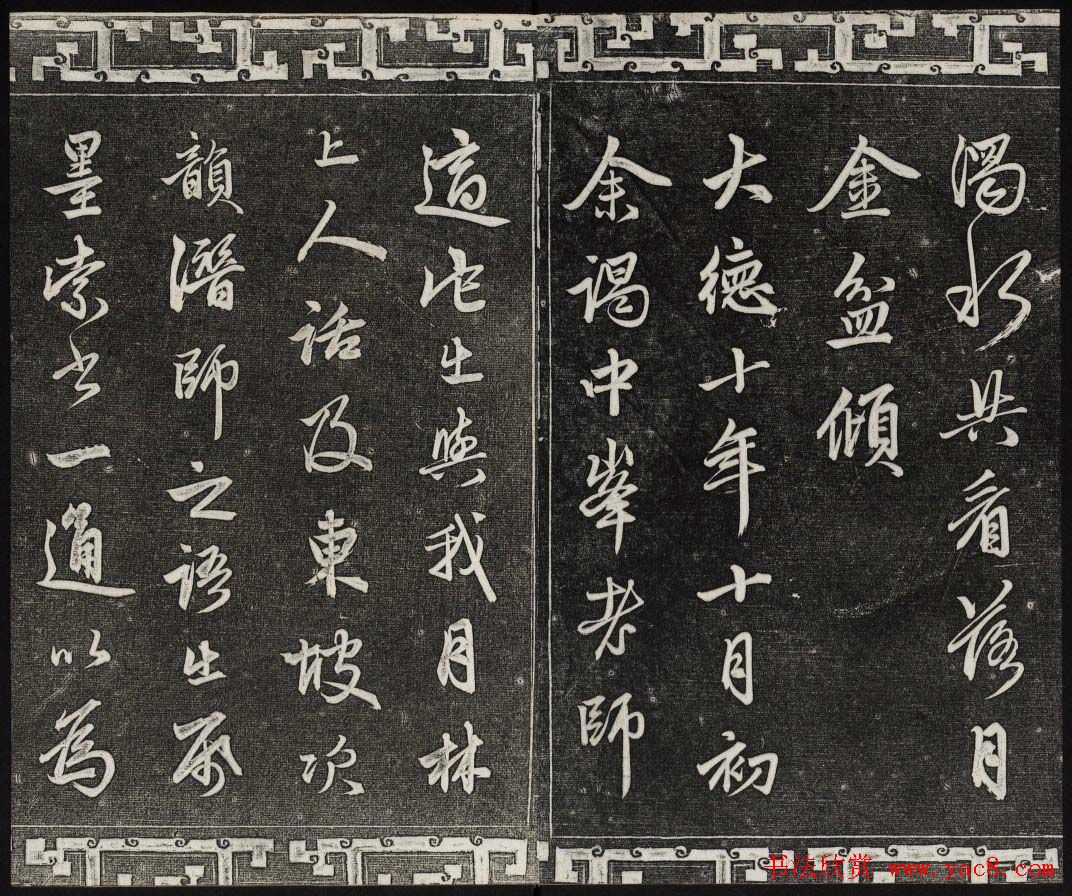 濁水共看落月
金盆傾
大德十年十月初
余謁中峯老師
適他出與我月林
上人話及東坡次
韻潛師之語出帋
墨索書一通以為
书法欣赏 www.yac8.com